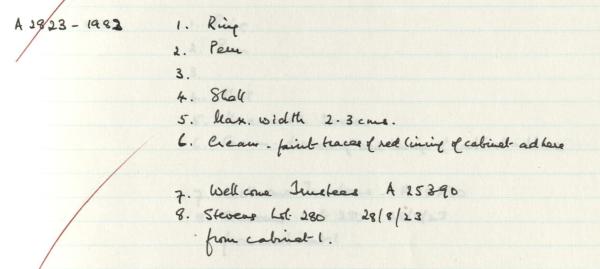 A 2823-1982 1. Ring
2. Peru
3.
4. Shell
5. Max. width 2.3 cms.
6. Cream. faint traces of red lining of cabinet adhere
7. Wellcome Trustees A 25390
8. Stevens Lot 280 28/8/23
from cabinet 1.